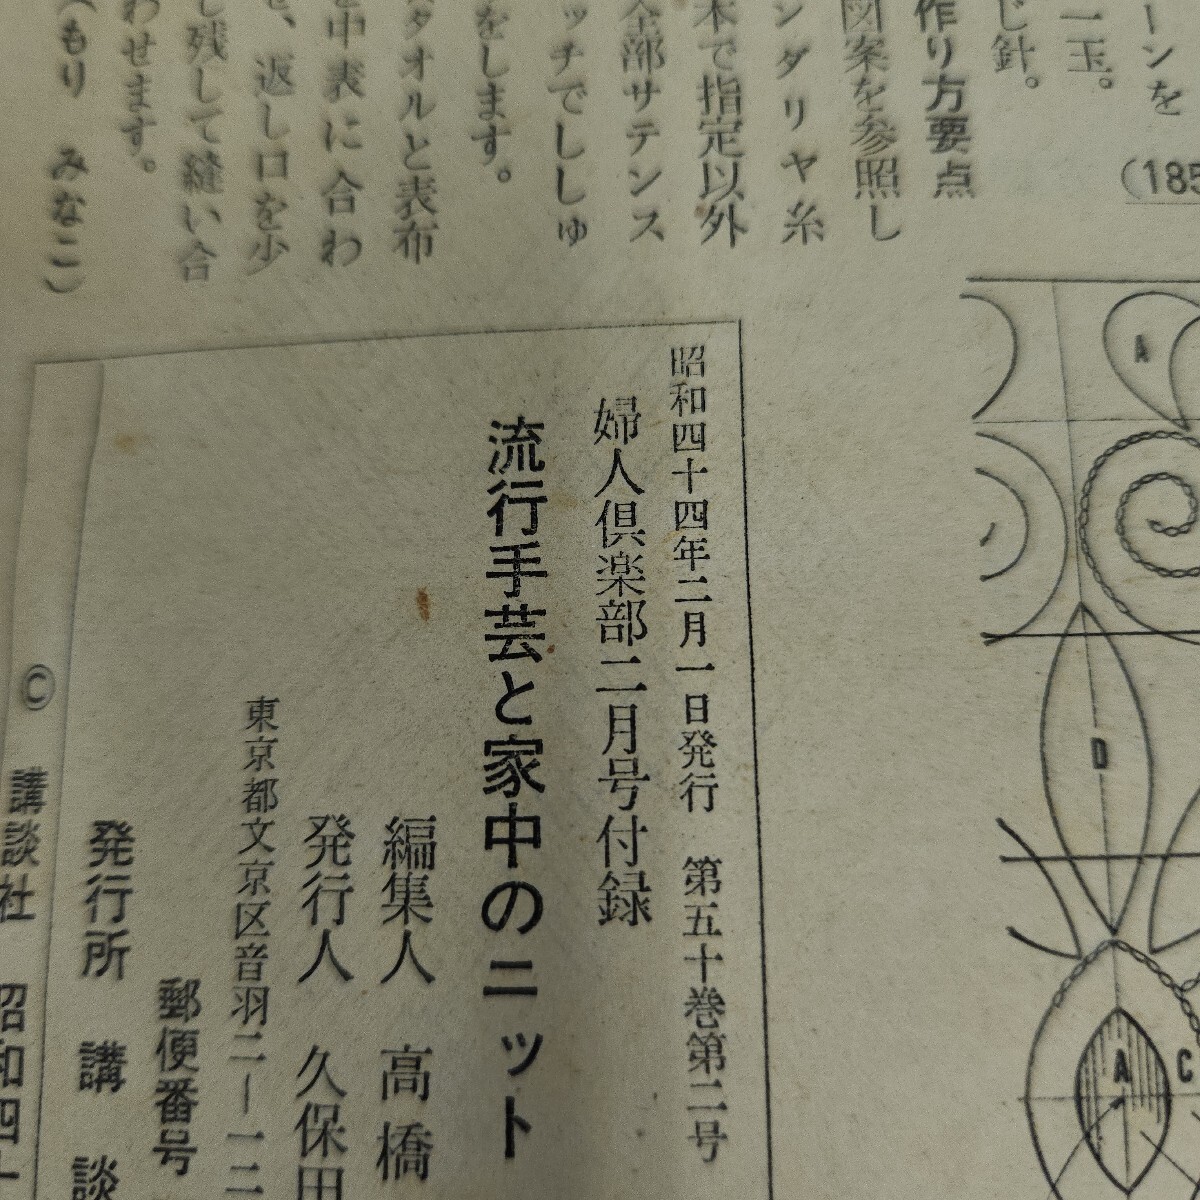 ーンを
一玉。
じ針。
作り方要点
図案を参照し
ンダリヤ糸
本で指定以外
全部サテンス
ッチでししゅ
をします。
タオルと表布
中表に合わ
、返し口を少
し残して縫い合
わせます。
(もり みなこ)
(185
A
D
A
C
昭和四十四年二月一日発行 第五十巻第二号
婦人倶楽部二月号付録
流行手芸と家中のニット
編集人 高橋
発行人 久保田
東京都文京区音羽二ー一二
郵便番号
発行所 講談
© 講談社 昭和四十